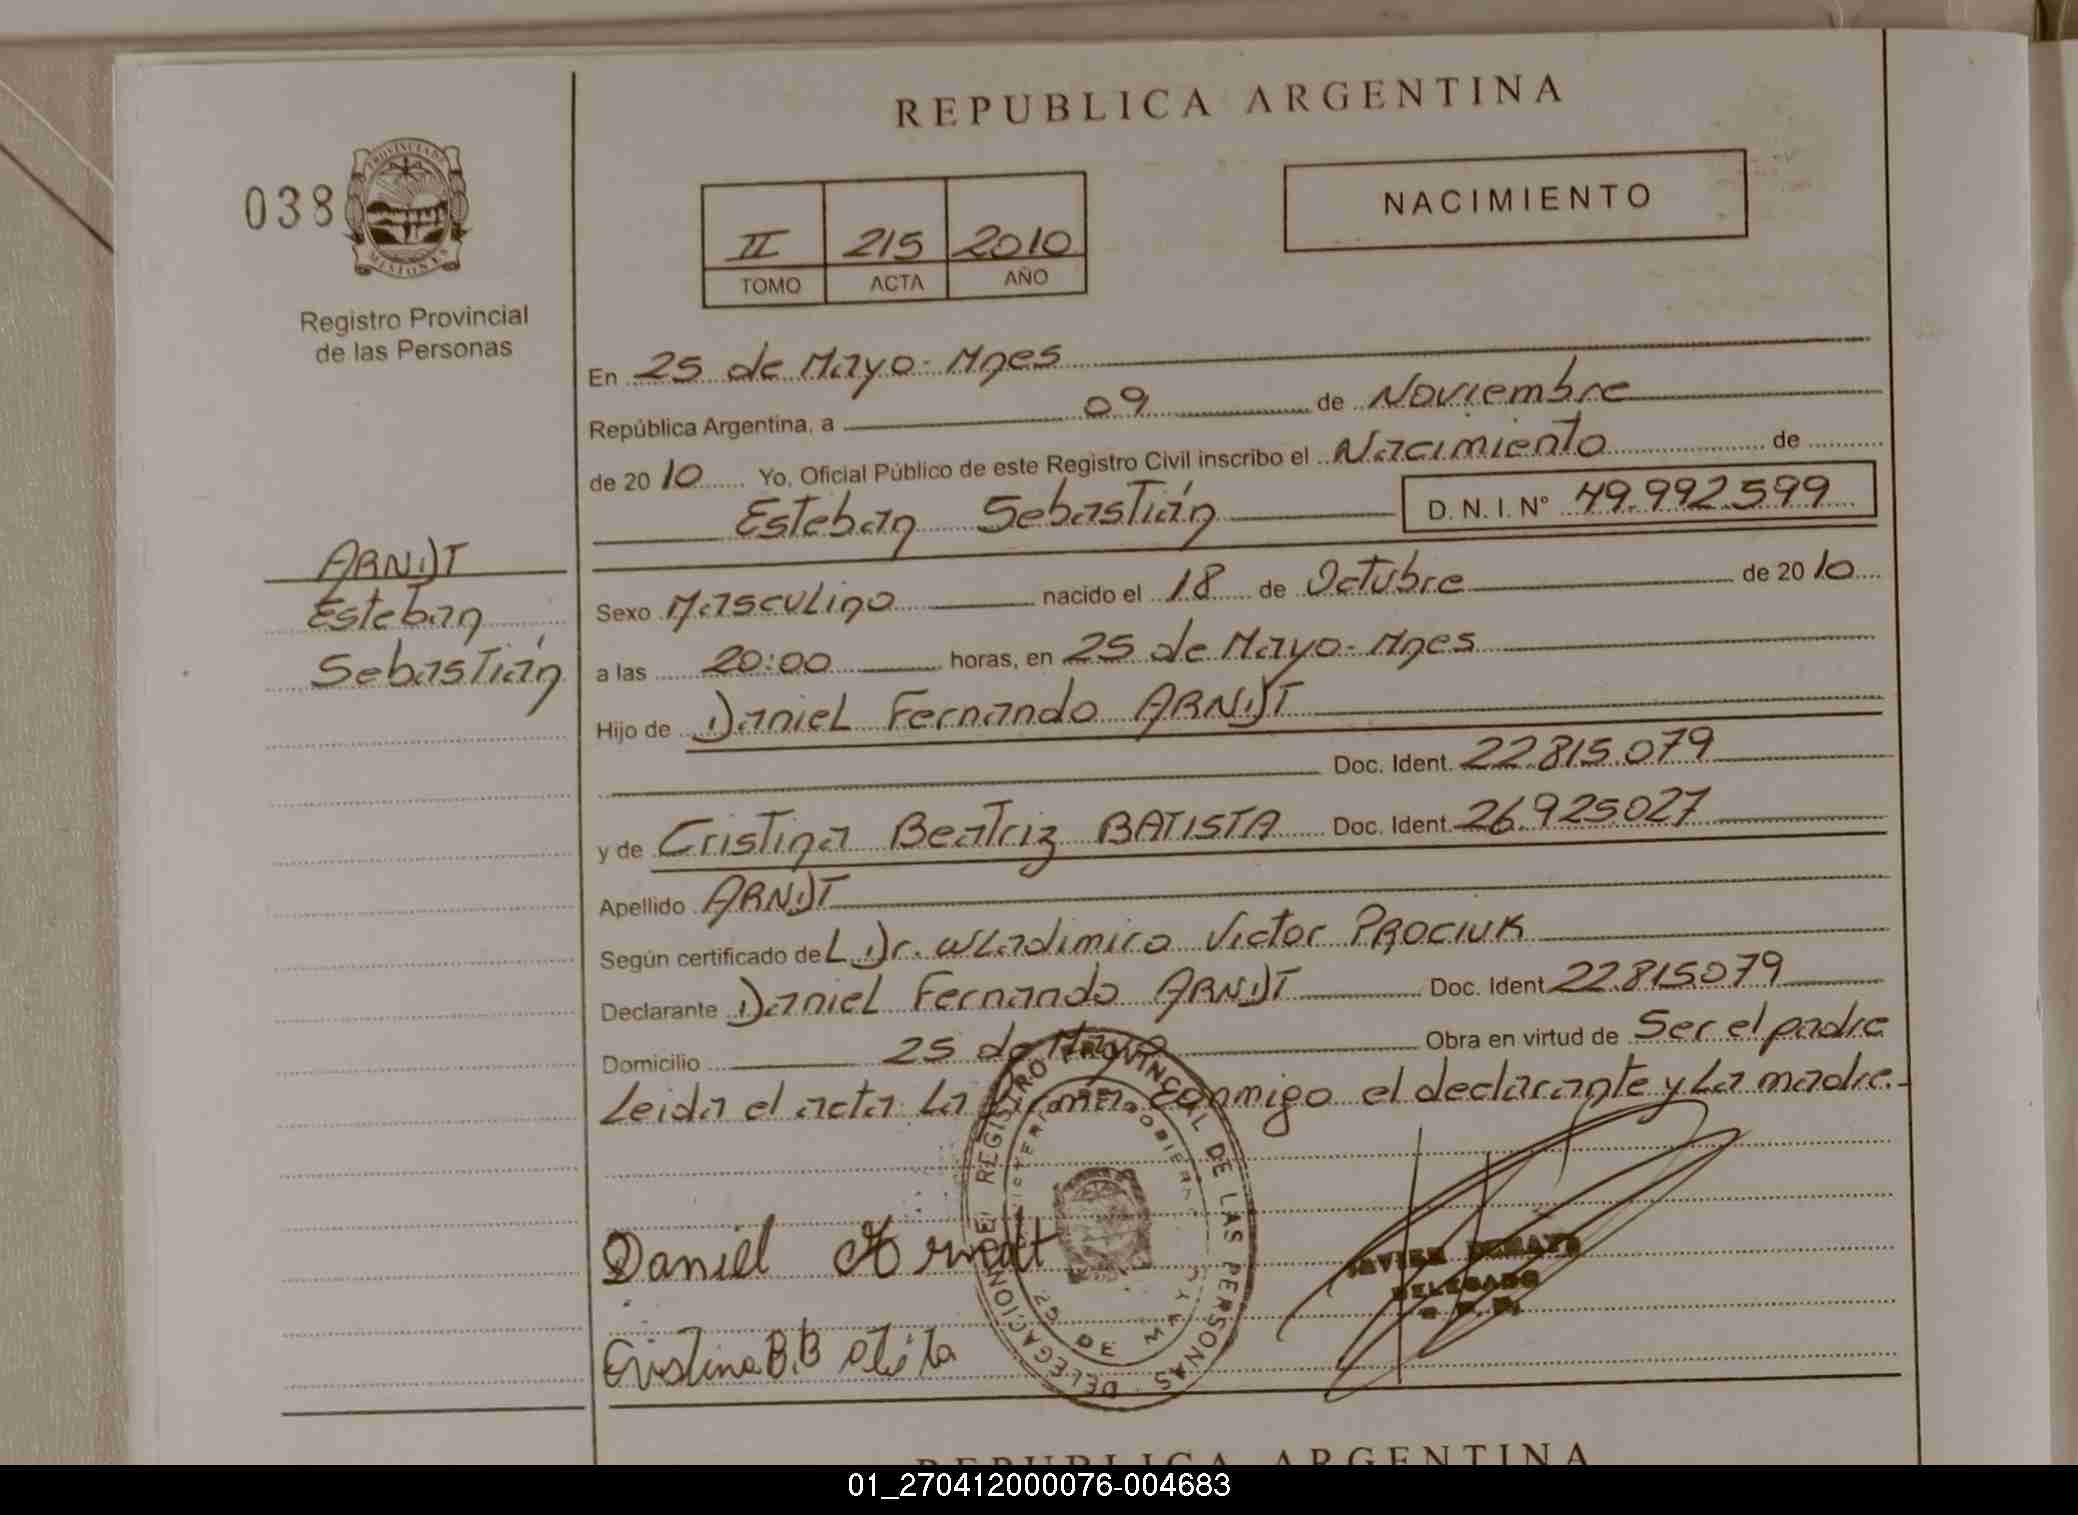 REPUBLICA ARGENTINA
038
PROVINCIA DE
MISIONES
Registro Provincial
de las Personas
NACIMIENTO
II 215 2010
TOMO ACTA AÑO
En 25 de Mayo - Mnes
República Argentina, a 09 de Noviembre
de 2010 Yo, Oficial Público de este Registro Civil inscribo el Nacimiento de
Esteban Sebastián D. N. I. Nº 49.992.599
ARNDT
Esteban
Sebastián
Sexo Masculino nacido el 18 de Octubre de 2010
a las 20:00 horas, en 25 de Mayo - Mnes
Hijo de Daniel Fernando ARNDT
Doc. Ident. 22.815.079
y de Cristina Beatriz BATISTA Doc. Ident. 26.925.027
Apellido ARNDT
Según certificado del Dr. Wladimiro Victor PROCIUK
Declarante Daniel Fernando ARNDT Doc. Ident 22.815.079
Domicilio 25 de Mayo Obra en virtud de Ser el padre
Leida el acta La firma conmigo el declarante y La madre.-
REGISTRO PROVINCIAL DE LAS PERSONAS
DELEGACION DE
25 DE MAYO
Daniel Arndt
DELEGADO
Cristina B. Batista
REPUBLICA ARGENTINA
01_270412000076-004683